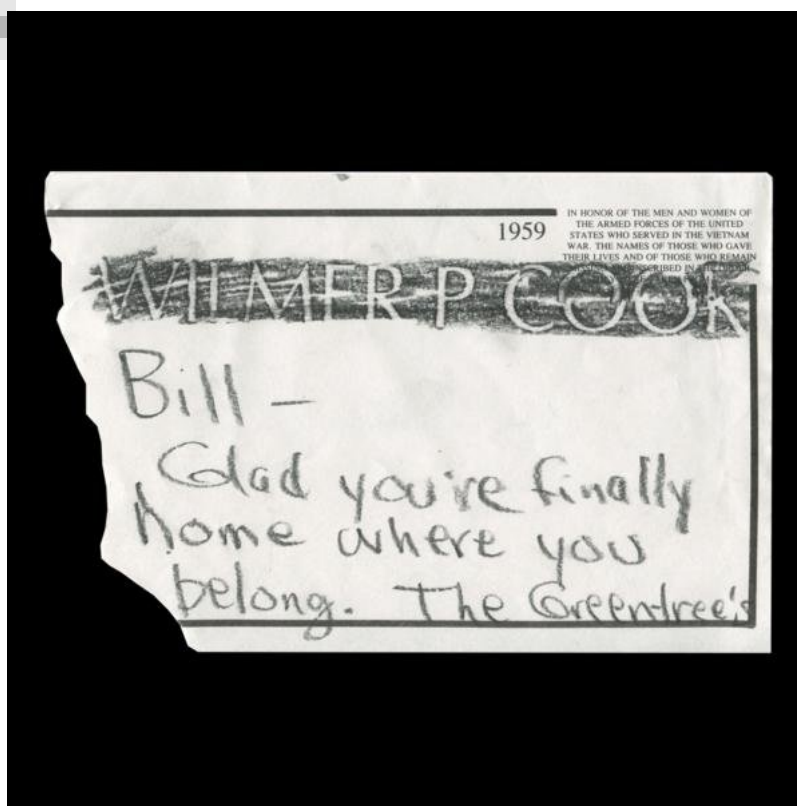 1959
IN HONOR OF THE MEN AND WOMEN OF
THE ARMED FORCES OF THE UNITED
STATES WHO SERVED IN THE VIETNAM
WAR. THE NAMES OF THOSE WHO GAVE
THEIR LIVES AND OF THOSE WHO REMAIN
INSCRIBED IN
WILMER P COOK
Bill —
Glad you're finally
home where you
belong. The Greentree's